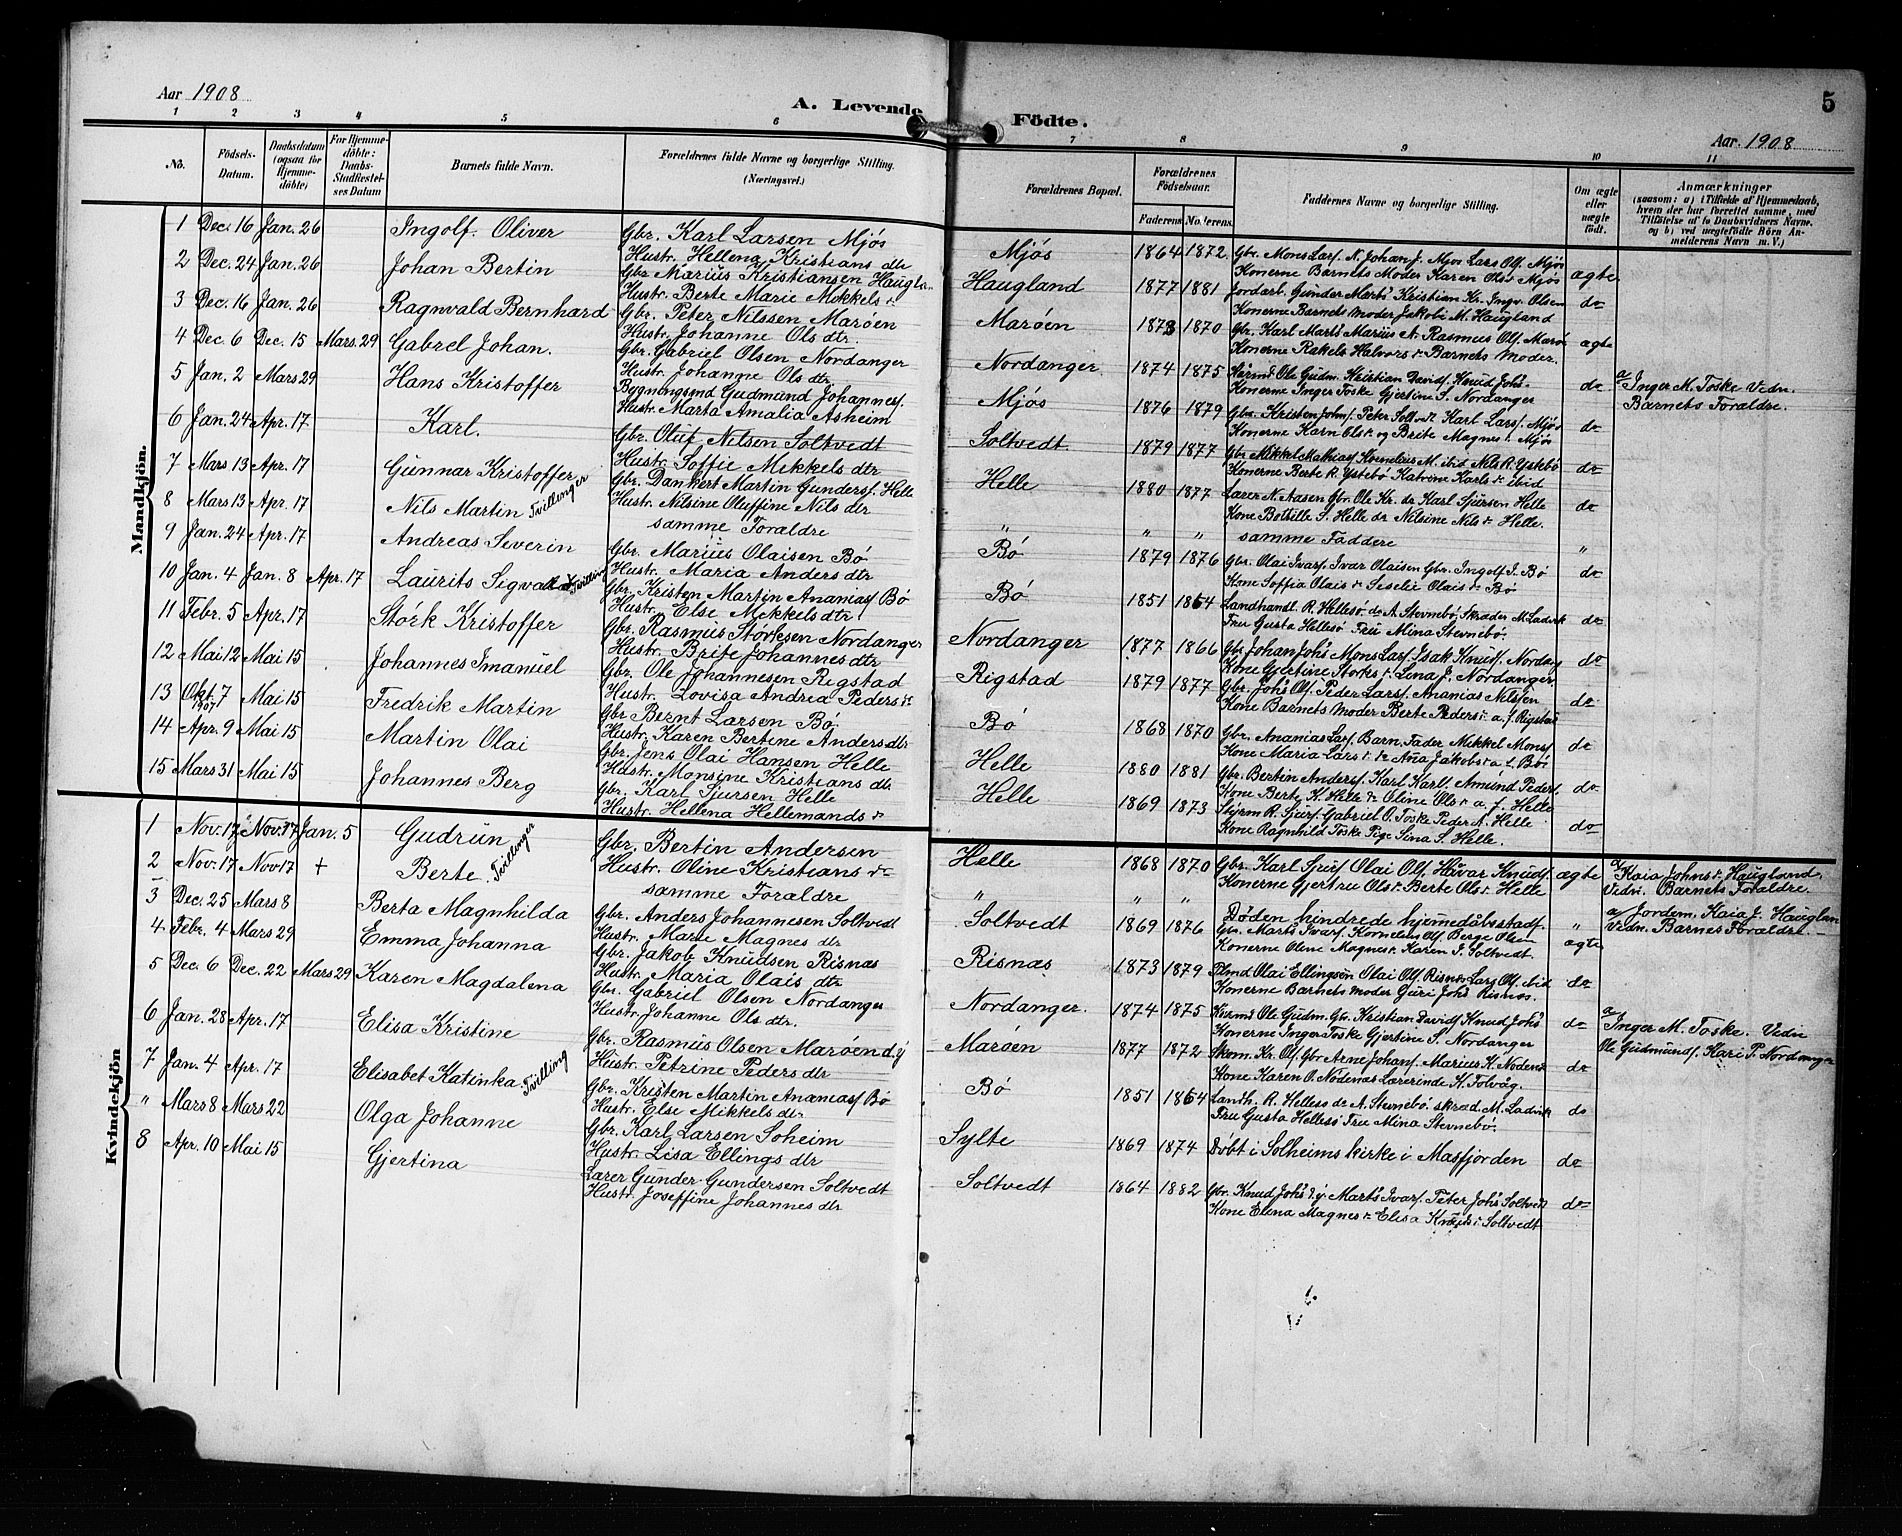 Aar 1908
A. Levende
1 2 3 4 5 6
No.
Födsels-Datum.
Daabsdatum (ogsaa for Hjemme-döbte)
For Hjemme-döbte: Daabs-Stadfæstel-ses Datum
Barnets fulde Navn.
Forældrenes fulde Navne og borgerlige Stilling. (Næringsvei.)
Mandkjön.
1 Dec. 16 Jan. 26 Ingolf Oliver Gbr. Karl Larsen Mjøs
Hustr. Hellena Kristians dtr
2 Dec. 24 Jan. 26 Johan Bertin Gbr. Marius Kristiansen Haugla
Hustr. Berte Marie Mikkels dr
3 Dec. 16 Jan. 26 Ragnvald Bernhard Gbr. Peter Nilssen Marøen
Hustr. Johanne Ols dtr.
4 Dec. 6 Dec. 15 Mars. 29 Gabrel Johan. Gbr. Gabriel Olsen Nordanger
Hustr. Johanne Ols dtr
5 Jan. 2 Mars 29 Hans Kristoffer Bygningsmd Gudmund Johannesf.
Hustr. Marta Amalia Asheim
6 Jan. 24 Apr. 17 Karl. Gbr. Oluf Nilsen Soltvedt
Hustr. Soffie Mikkels dtr
7 Mars 13 Apr. 17 Gunnar Kristoffer Tvillinger Gbr. Dankert Martin Gundersf. Helle
Hustr. Nilsine Oluffine Nils dtr
8 Mars. 13 Apr. 17 Nils Martin samme Foraldre
9 Jan. 24 Apr. 17 Andreas Severin Gbr. Marius Olaisen Bø
Hustr. Maria Anders dtr
10 Jan. 4 Jan. 8 Apr. 17 Laurits Segvald Tvilling Gbr. Kristen Martin Ananiasf Bø
Hustr. Else Mikkels dtr
11 Febr. 5 Apr. 17 Størk Kristoffer Gbr. Rasmus Størksen Nordanger
Hustr. Brite Johannes dtr
12 Mai 12 Mai 15 Johannes Imanuel Gbr. Ole Johannesen Rigstad
Hustr. Lovisa Andrea Peders dr
13 Okt. 7 1907 Mai 15 Fredrik Martin Gbr Bernt Larsen Bø
Hustr. Karen Bertine Anders dtr
14 Apr. 9 Mai 15 Martin Olai Gbr. Jens Olai Hansen Helle
Hustr. Monsine Kristians dtr
15 Mars 31 Mai 15 Johannes Berg Gbr. Karl Sjursen Helle
Hustr. Hellena Hellemands dr
Kvindekjön
1 Nov. 17 Nov. 17 Jan. 5 Gudrun Tvillinger Gbr. Bertin Andersen
Hustr. Oline Kristians dr
2 Nov. 17 Nov 17 + Berte. samme Foraldre
3 Dec. 25 Mars 8 Berta Magnhilda Gbr. Anders Johannesen Soltvedt
Hustr. Marie Magnes dtr
4 Febr. 4 Mars 29 Emma Johanna Gbr. Jakob Knudsen Risnæs
Hustr. Maria Olais dtr
5 Dec. 6 Dec. 22 Mars 29 Karen Magdalena Gbr. Gabriel Olsen Nordanger
Hustr. Johanne Ols dtr.
6 Jan. 28 Apr. 17 Elisa Kristine Gbr. Rasmus Olsen Marøen d.y
Hustr. Petrine Peders dtr
7 Jan. 4 Apr. 17 Elisabet Katinka Tvilling Gbr. Kristen Martin Ananiasf Bø
Hustr. Else Mikkels dr
" Mars 8 Mars 22 Olga Johanne Gbr. Karl Larsen Soheim
Hustr. Lisa Ellings dtr
8 Apr. 10 Mai 15 Gjertina Lærer Gunder Gundersen Soltvedt
Hustr. Joseffine Johannes dtr
Födte.
5
Aar 1908
7 8 9 10 11
Forældrenes Bopæl.
Forældrenes Födselsaar.
Faderens Moderens.
Faddernes Navne og borgerlige Stilling.
Om ægte eller uægte födt.
Anmærkninger
(saasom: a) i Tilfælde af Hjemmedaab,
hvem der har forrettet samme, med
Tilföielse af to Daabsvidners Navne,
og b) ved uægtefödte Börn An-
melderens Navn m. V.)
Mjøs 1864 1872 Gbr. Mons Larsf. N. Johan J. Mjøs Lars Olf. Mjøs ægte
Konerne Barnets Moder Karen Ols dr Mjøs
Haugland 1877 1881 Jordarb. Gunder Marts Kristian Kr. Ingv. Olsen do
Konerne Barnets Moder Jakobi M. Haugland
Marøen 1873 1870 Gbr. Karl Marts Marius A. Rasmus Olf. Marø ægte
Konerne Rakels Halvors dr Barnets Moder.
Nordanger 1874 1875 Ole Gudm. Kristian Davidf. Knud Johs do a Inger M. Toske Vedn.
Konerne Inger Toske Gjertine S. Nordanger Barnets Foraldre.
Mjøs 1876 1879 Gbr. Kristen Johnf. Peter Soltv dr Karl Larsf. Mjøs do
Konerne Karn Ols dr og Brite Magnes dr Mjøs
Soltvedt 1879 1877 Gbr Mikkel Mathiasf Kornelius M. ibid Nils R. Ystebø do
Konerne Berte R. Ystebø Katrine Karls dr ibid
Helle 1880 1877 Lærer N. Aasen Gbr. Ole Kr. do Karl Sjursen Helle do
Kone Botsille S. Helle do Nilsine Nils dr Helle.
" " " samme Faddere "
Bø 1879 1876 Gbr. Olai Ivarsf. Ivar Olaisen Gbr. Ingolf I. Bø do
Kone Soffia Olais dr Seselie Olais dr Bø
Bø 1851 1864 Landhandl. R. Hellesø do A. Stevnebø Skræder M. Ladvik do
Fru Gusta Hellesø Fru Mina Stevnebø.
Nordanger 1877 1866 Gbr. Johan Johs Mons Larsf. Isak Knudf. Nordang do
Kone Gjertine Størks dr Lena J. Nordanger.
Rigstad 1879 1877 Gbr. Johs Olf. Peder Larsf. Ananias Nilsen do
Kone Barnets Moder Berte Peders dr a. f. Rigstad
Bø 1868 1870 Gbr. Ananias Larsf. Barn. Fader Mikkel Monsf do
Kone Maria Lars dr do Ana Jakobs dr a. f. Bø
Helle 1880 1881 Gbr. Bertin Andersf. Karl Karlf. Amund Pedersf. do
Kone Berte K. Helle do Oline Ols dr a. f. Helle
Helle 1869 1873 Styrm R. Sjurf. Gabriel O. Toske Peder A. Helle do
Kone Ragnhild Toske Pige Sina S. Helle.
Helle 1868 1870 Gbr. Karl Sjurf Olai Olf. Havar Knudf. ægte a Kaia Johns dr Haugland
Konerne Gjertru Ols dr Berte Ols dr Helle Vidn. Barnets Foraldre.
" " " Døden hindrede hjemmedåbsstadf. " a Jordem. Kaia J. Hauglan
Soltvedt 1869 1876 Gbr. Marts Ivarf. Kornelius Olf. Berge Olsen ægte Vedn. Barnes Foraldre.
Konerne Olene Magnes dr Karen J. Soltvedt.
Risnæs 1873 1879 Olai Ellingsøn Olai Olf Risnæs Lars Olf. ibid do
Konerne Barnets Moder Guri Johs Risnæs.
Nordanger. 1874 1875 Ole Gudm. Gbr. Kristian Davidf Knud Johs do a Inger M. Toske. Vedn
Konerne Inger Toske Gjertine S. Nordanger Ole Gudmundf. Kari P. Nordanger
Marøen 1877 1872 Skom. Kr. Olf. Gbr Arne Johanf. Marius K. Nodenæs do
Kone Karen O. Nodenæs Lærerinde K. Tolvåg.
Bø 1851 1864 Landh. R. Hellesø do A. Stevnebø. skræd M. Ladvik do
Fru Gusta Hellesø Fru Mina Stevnebø.
Sylte 1869 1874 Døbt i Solheims kirke i Masfjorden do
Soltvedt 1864 1882 Gbr. Knud Johs d.y. Marts Ivarf. Peter Johs Soltvedt do
Kone Elena Magnes dr Elisa Knuds dr Soltvedt